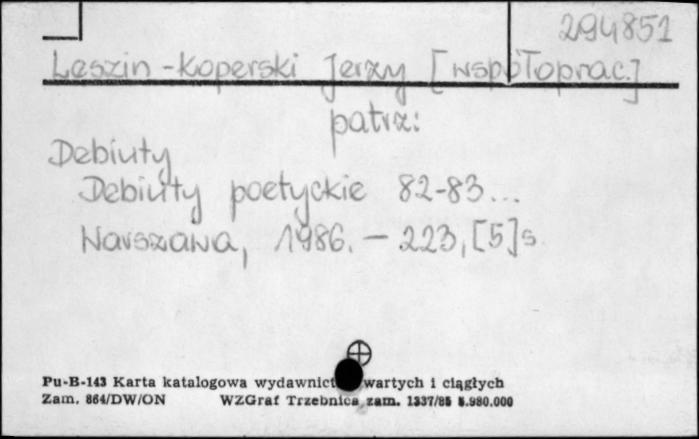 294851
Leszin-Koperski Jerzy [współoprac.]
patrz:
Debiuty
Debiuty poetyckie 82-83...
Warszawa, 1986. - 223, [5]s
Pu-B-143 Karta katalogowa wydawnict wartych i ciągłych
Zam. 864/DW/ON WZGraf Trzebnica zam. 1337/85 5.980.000